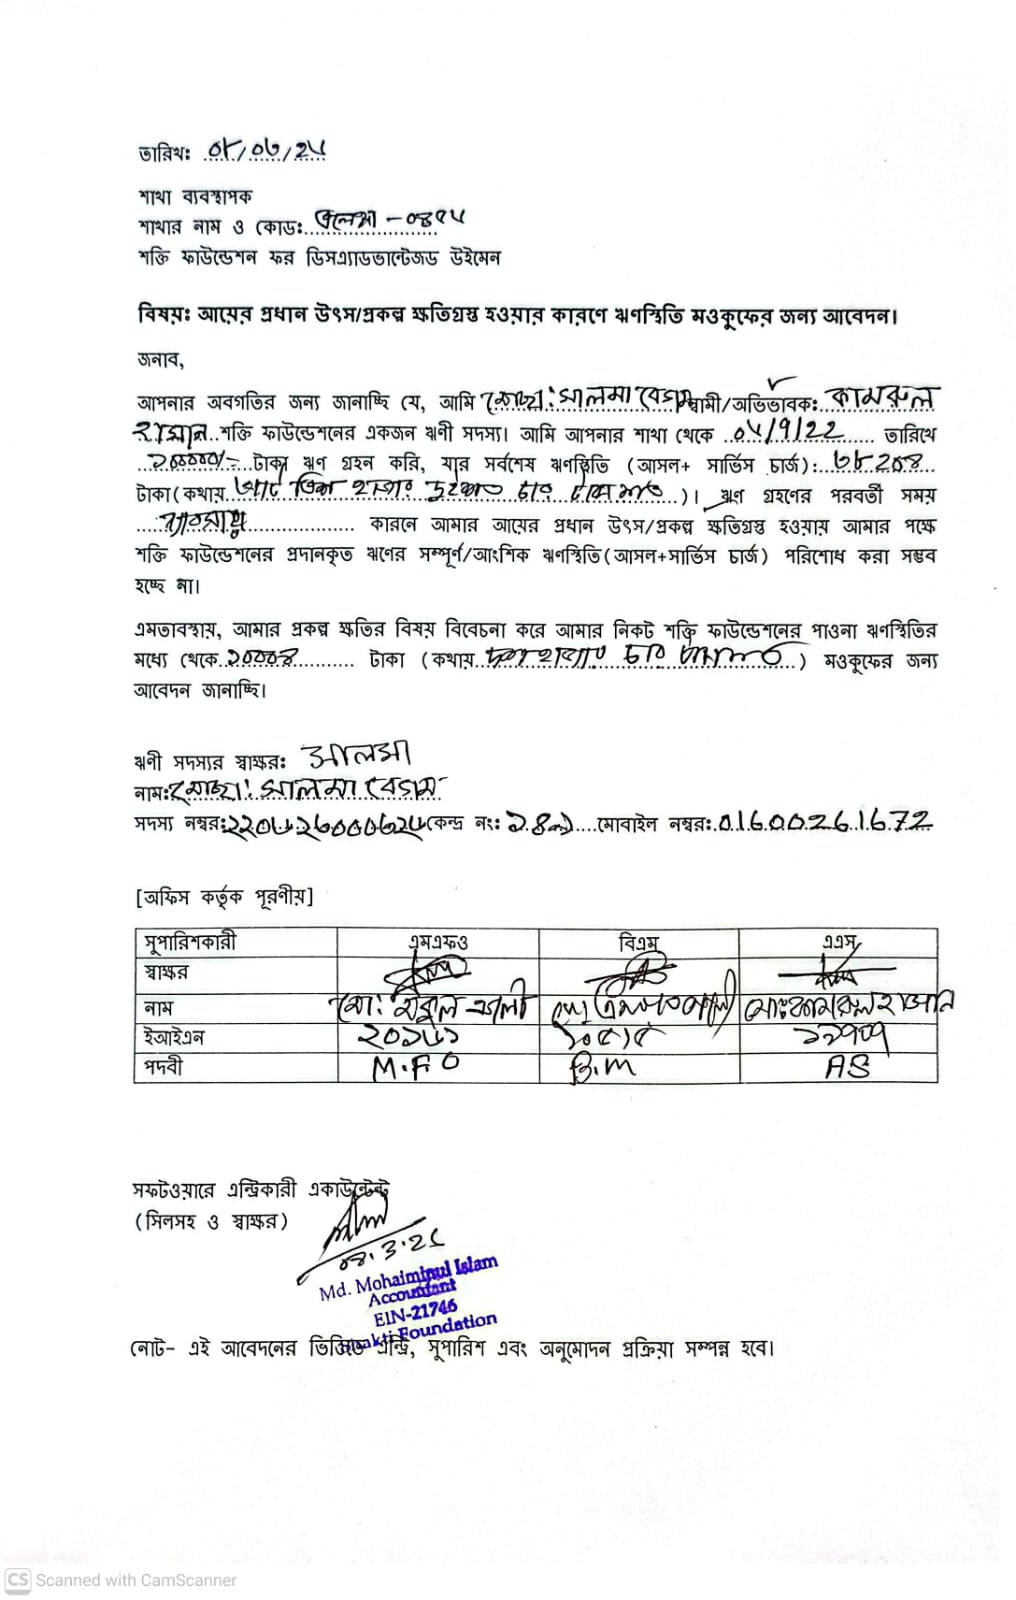 তারিখঃ ০৮/০৩/২৫
শাখা ব্যবস্থাপক
শাখার নাম ও কোডঃ - ০৪৭৫
শক্তি ফাউন্ডেশন ফর ডিসএ্যাডভান্টেজড উইমেন
বিষয়ঃ আয়ের প্রধান উৎস/প্রকল্প ক্ষতিগ্রস্ত হওয়ার কারণে ঋণস্থিতি মওকুফের জন্য আবেদন।
জনাব,
আপনার অবগতির জন্য জানাচ্ছি যে, আমি মোছা: সালমা বেগম স্বামী/অভিভাবক: কামরুল
হাসান শক্তি ফাউন্ডেশনের একজন ঋণী সদস্য। আমি আপনার শাখা থেকে ০৫/9/22 তারিখে
টাকা ঋণ গ্রহন করি, যার সর্বশেষ ঋণস্থিতি (আসল+ সার্ভিস চার্জ): ৩৮২০৪
টাকা (কথায় হাজার দুইশত চার টাকা মাত্র)। ঋণ গ্রহণের পরবর্তী সময়
ব্যবসায় কারনে আমার আয়ের প্রধান উৎস/প্রকল্প ক্ষতিগ্রস্ত হওয়ায় আমার পক্ষে
শক্তি ফাউন্ডেশনের প্রদানকৃত ঋণের সম্পূর্ণ/আংশিক ঋণস্থিতি (আসল+সার্ভিস চার্জ) পরিশোধ করা সম্ভব
হচ্ছে না।
এমতাবস্থায়, আমার প্রকল্প ক্ষতির বিষয় বিবেচনা করে আমার নিকট শক্তি ফাউন্ডেশনের পাওনা ঋণস্থিতির
মধ্যে থেকে ১০০০৪ টাকা (কথায় দশ হাজার চার টাকা মাত্র) মওকুফের জন্য
আবেদন জানাচ্ছি।
ঋণী সদস্যর স্বাক্ষরঃ সালমা
নামঃ মোছা: সালমা বেগম
সদস্য নম্বরঃ কেন্দ্র নং: মোবাইল নম্বরঃ 01600261672
[অফিস কর্তৃক পূরণীয়]
সুপারিশকারী এমএফও বিএম এএস
স্বাক্ষর
নাম মো: আলী মোঃ কামরুল হাসান
ইআইএন ২০১৬১ ১০৫১৫ ১১৭০৭
পদবী M.F.O B.M AS
সফটওয়ারে এন্ট্রিকারী একাউন্টেন্ট
(সিলসহ ও স্বাক্ষর)
Md. Mohaiminul Islam
Accountant
EIN-21746
Shakti Foundation
নোট- এই আবেদনের ভিত্তিতে এন্ট্রি, সুপারিশ এবং অনুমোদন প্রক্রিয়া সম্পন্ন হবে।
CS Scanned with CamScanner